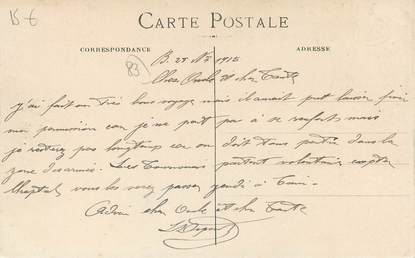 15 €
CARTE POSTALE
CORRESPONDANCE
ADRESSE
83
B. 28 Nov 1915
Cher Oncle et cher Tante
J'ai fait un très bon voyage mais il aurait put laisser finir
ma permission car je ne part pas à ce renfort mais
je resterez pas longtemps car on doit tous partir dans la
zone des armées. partent volontaires
vous les verez passer jeudi à
cher Oncle et cher Tante